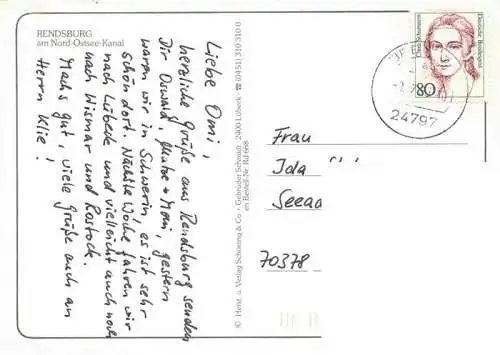 RENDSBURG
am Nord-Ostsee-Kanal
Liebe Omi,
herzliche Grüße aus Rendsburg senden
Dir Oswald, + , gestern
waren wir in Schwerin, es ist sehr
schön dort. Nächste Woche fahren wir
nach Lübeck und vielleicht auch noch
nach Wismar und Rostock.
Machs gut, viele Grüße auch an
Herrn Klie!
© Horst u. Verlag Schöning & Co · Gebrüder Schmidt · 2400 Lübeck · ☎ (0451) 310 31 0
Bestell-Nr. Rd 668
Deutsche Bundespost
Clara Schumann
80
24797
Frau
Ida
70378